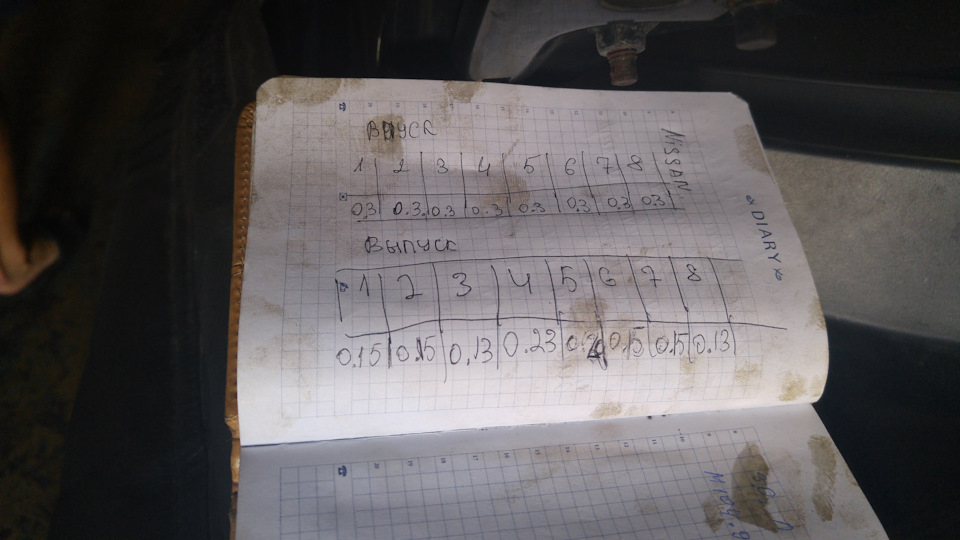 NISSAN
DIARY
ВПУСК
1 2 3 4 5 6 7 8
0.3 0.3 0.3 0.3 0.3 0.3 0.3 0.3
Выпуск
1 2 3 4 5 6 7 8
0.15 0.15 0.13 0.23 0.15 0.15 0.13